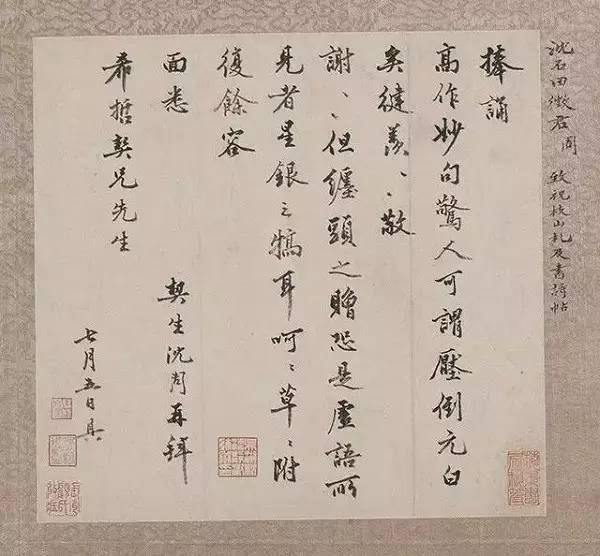 沈石田徵君周 致祝枝山札及書詩帖
捧誦
高作妙句驚人可謂壓倒元白
矣健羨、、敬
謝、、但纏頭之贈恐是虛語所
見者星銀之犒耳呵、草、附
復餘容
面悉
希哲契兄先生
契生沈周再拜
七月五日具